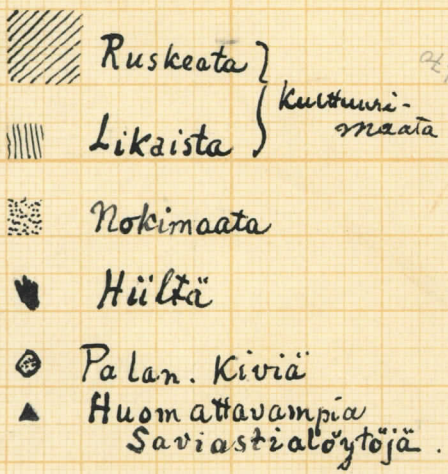 Ruskeata
Kulttuuri-
maata
Likaista
Nokimaata
Hiiltä
Palan. Kiviä
Huomattavampia
Saviastialöytöjä.